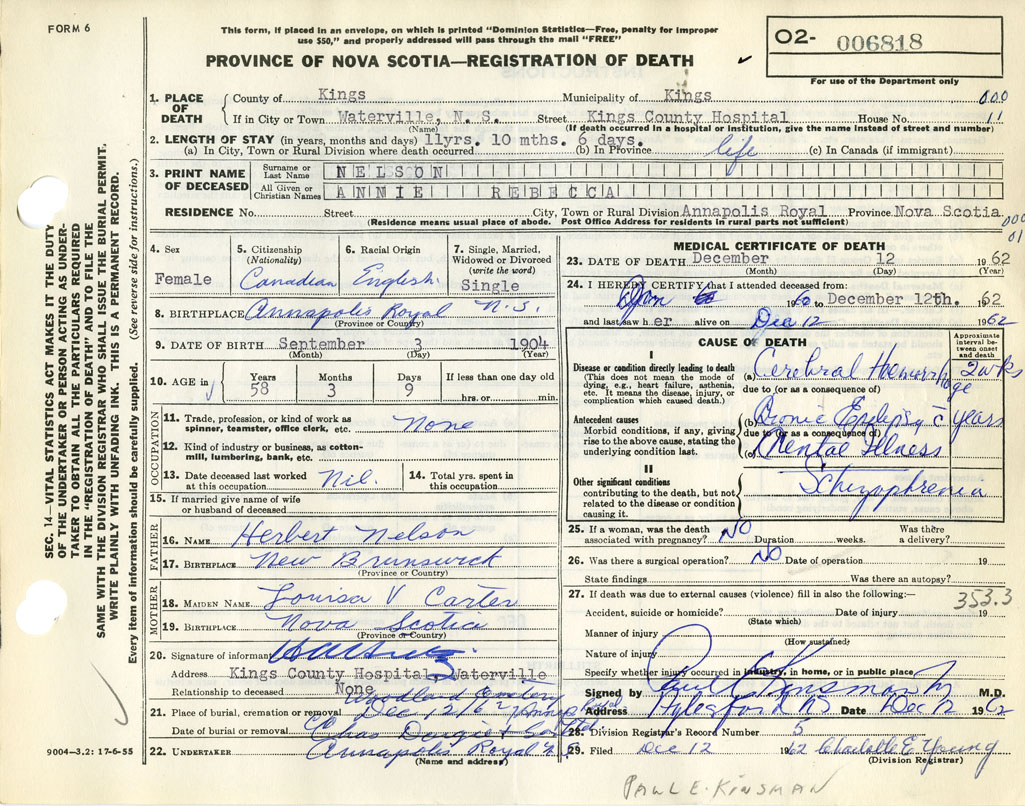 FORM 6
This form, if placed in an envelope, on which is printed "Dominion Statistics—Free, penalty for improper
use $50," and properly addressed will pass through the mail "FREE"
PROVINCE OF NOVA SCOTIA—REGISTRATION OF DEATH
O2- 006818
For use of the Department only
1. PLACE OF DEATH
County of Kings Municipality of Kings 000
If in City or Town Waterville, N. S. Street Kings County Hospital House No. 11
(Name) (If death occurred in a hospital or institution, give the name instead of street and number)
2. LENGTH OF STAY (in years, months and days) 11yrs. 10 mths. 6 days.
(a) In City, Town or Rural Division where death occurred (b) In Province life (c) In Canada (if immigrant)
3. PRINT NAME OF DECEASED
Surname or Last Name NELSON
All Given or Christian Names ANNIE REBECCA
RESIDENCE No. Street City, Town or Rural Division Annapolis Royal Province Nova Scotia
(Residence means usual place of abode. Post Office Address for residents in rural parts not sufficient)
01
SEC. 14—VITAL STATISTICS ACT MAKES IT THE DUTY
OF THE UNDERTAKER OR PERSON ACTING AS UNDER-
TAKER TO OBTAIN ALL THE PARTICULARS REQUIRED
IN THE "REGISTRATION OF DEATH" AND TO FILE THE
SAME WITH THE DIVISION REGISTRAR WHO SHALL ISSUE THE BURIAL PERMIT.
WRITE PLAINLY WITH UNFADING INK. THIS IS A PERMANENT RECORD.
Every item of information should be carefully supplied. (See reverse side for instructions.)
4. Sex 5. Citizenship 6. Racial Origin 7. Single, Married,
(Nationality) Widowed or Divorced
(write the word)
Female Canadian English Single
8. BIRTHPLACE Annapolis Royal N.S.
(Province or Country)
9. DATE OF BIRTH September 3 1904
(Month) (Day) (Year)
10. AGE in Years Months Days If less than one day old
58 3 9 hrs. or min.
OCCUPATION
11. Trade, profession, or kind of work as
spinner, teamster, office clerk, etc. None
12. Kind of industry or business, as cotton-
mill, lumbering, bank, etc.
13. Date deceased last worked
at this occupation Nil. 14. Total yrs. spent in
this occupation
15. If married give name of wife
or husband of deceased
FATHER
16. NAME Herbert Nelson
17. BIRTHPLACE New Brunswick
(Province or Country)
MOTHER
18. MAIDEN NAME Louisa V Carter
19. BIRTHPLACE Nova Scotia
(Province or Country)
20. Signature of informant
Address Kings County Hospital, Waterville
Relationship to deceased None
21. Place of burial, cremation or removal Woodland Cemetery
Date of burial or removal Dec 12/62
22. UNDERTAKER Annapolis Royal
(Name and address)
9004—3.2: 17-6-55
MEDICAL CERTIFICATE OF DEATH
23. DATE OF DEATH December 12 1962
(Month) (Day) (Year)
24. I HEREBY CERTIFY that I attended deceased from:
1960 to December 12th. 1962
and last saw her alive on Dec 12 1962
CAUSE OF DEATH
Approximate interval between onset and death
I
Disease or condition directly leading to death
(This does not mean the mode of
dying, e.g., heart failure, asthenia,
etc. It means the disease, injury, or
complication which caused death.)
(a) Cerebral Haemorrhage 2 wks
due to (or as a consequence of)
Antecedent causes
Morbid conditions, if any, giving
rise to the above cause, stating the
underlying condition last.
(b) Epilepsy c̄ years
due to (or as a consequence of)
(c) Mental Illness
II
Other significant conditions
contributing to the death, but not
related to the disease or condition
causing it.
Schizophrenia
25. If a woman, was the death
associated with pregnancy? NO Duration weeks. Was there
a delivery?
26. Was there a surgical operation? NO Date of operation 19
State findings Was there an autopsy?
27. If death was due to external causes (violence) fill in also the following:—
353.3
Accident, suicide or homicide? Date of injury 19
(State which)
Manner of injury
(How sustained)
Nature of injury
Specify whether injury occurred in industry, in home, or in public place
Signed by Paul E Kinsman M.D.
Address Aylesford NS Date Dec 12 1962
28. Division Registrar's Record Number 5
29. Filed Dec 12 1962 Charlotte E. Young
(Division Registrar)
PAUL E. KINSMAN